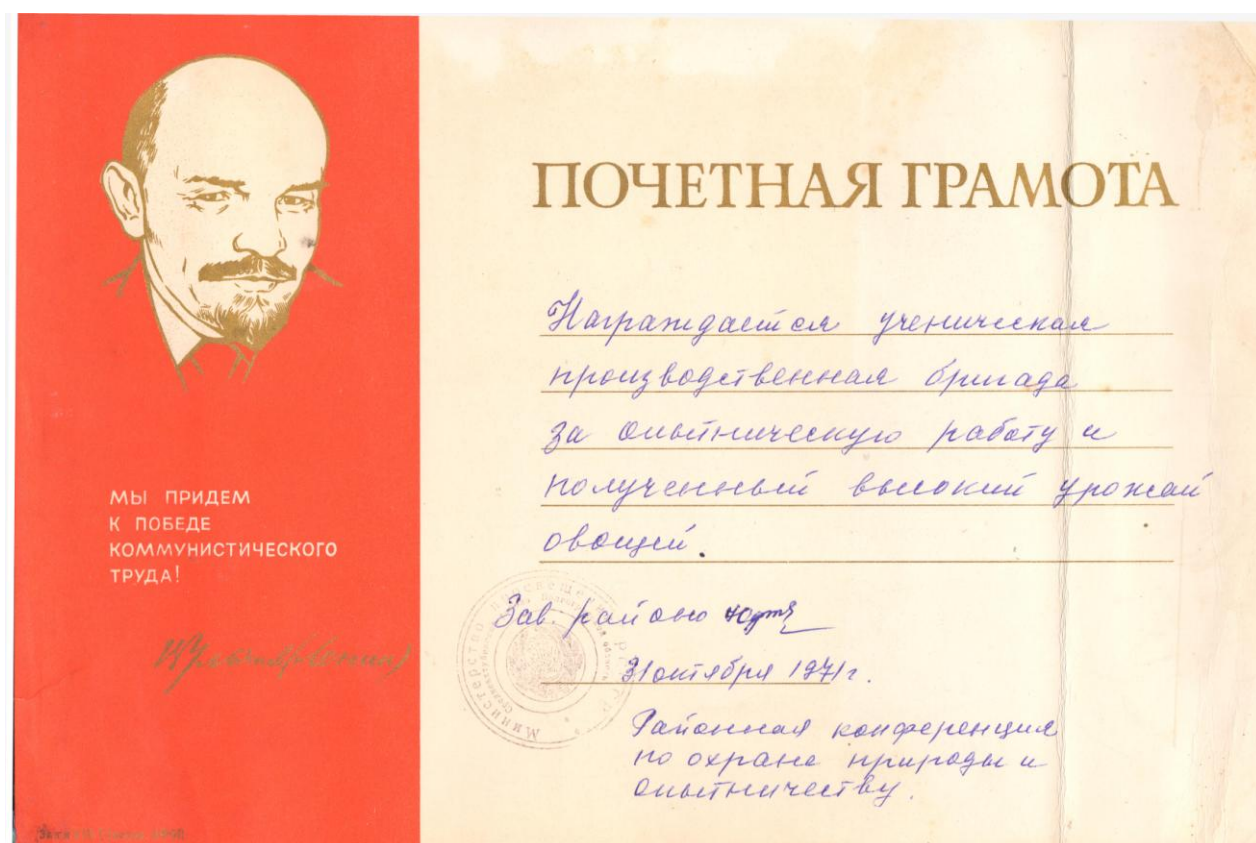 МЫ ПРИДЕМ
К ПОБЕДЕ
КОММУНИСТИЧЕСКОГО
ТРУДА!
ПОЧЕТНАЯ ГРАМОТА
Награждается ученическая
производственная бригада
за опытническую работу и
полученный высокий урожай
овощей.
Зав. районо
31 октября 1971 г.
Районная конференция
по охране природы и
опытничеству.
Министерство просвещения РСФСР